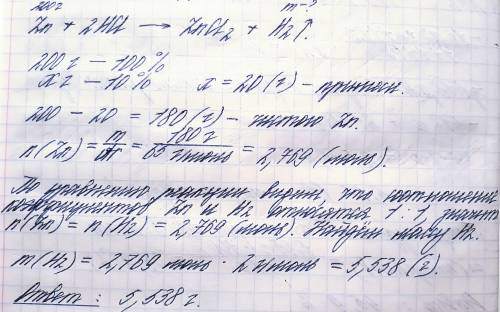 200г m-?
Zn + 2HCl → ZnCl₂ + H₂↑.
200 г - 100%
x г - 10% x = 20 (г) - примеси.
200 - 20 = 180 (г) - чистого Zn.
n(Zn) = m/M = 180 г/65 г/моль = 2,769 (моль).
По уравнению реакции видим, что соотношение
коэффициентов Zn и H₂ относятся 1:1, значит
n(Zn) = n(H₂) = 2,769 (моль). Найдём массу H₂.
m(H₂) = 2,769 моль · 2 г/моль = 5,538 (г).
Ответ: 5,538 г.